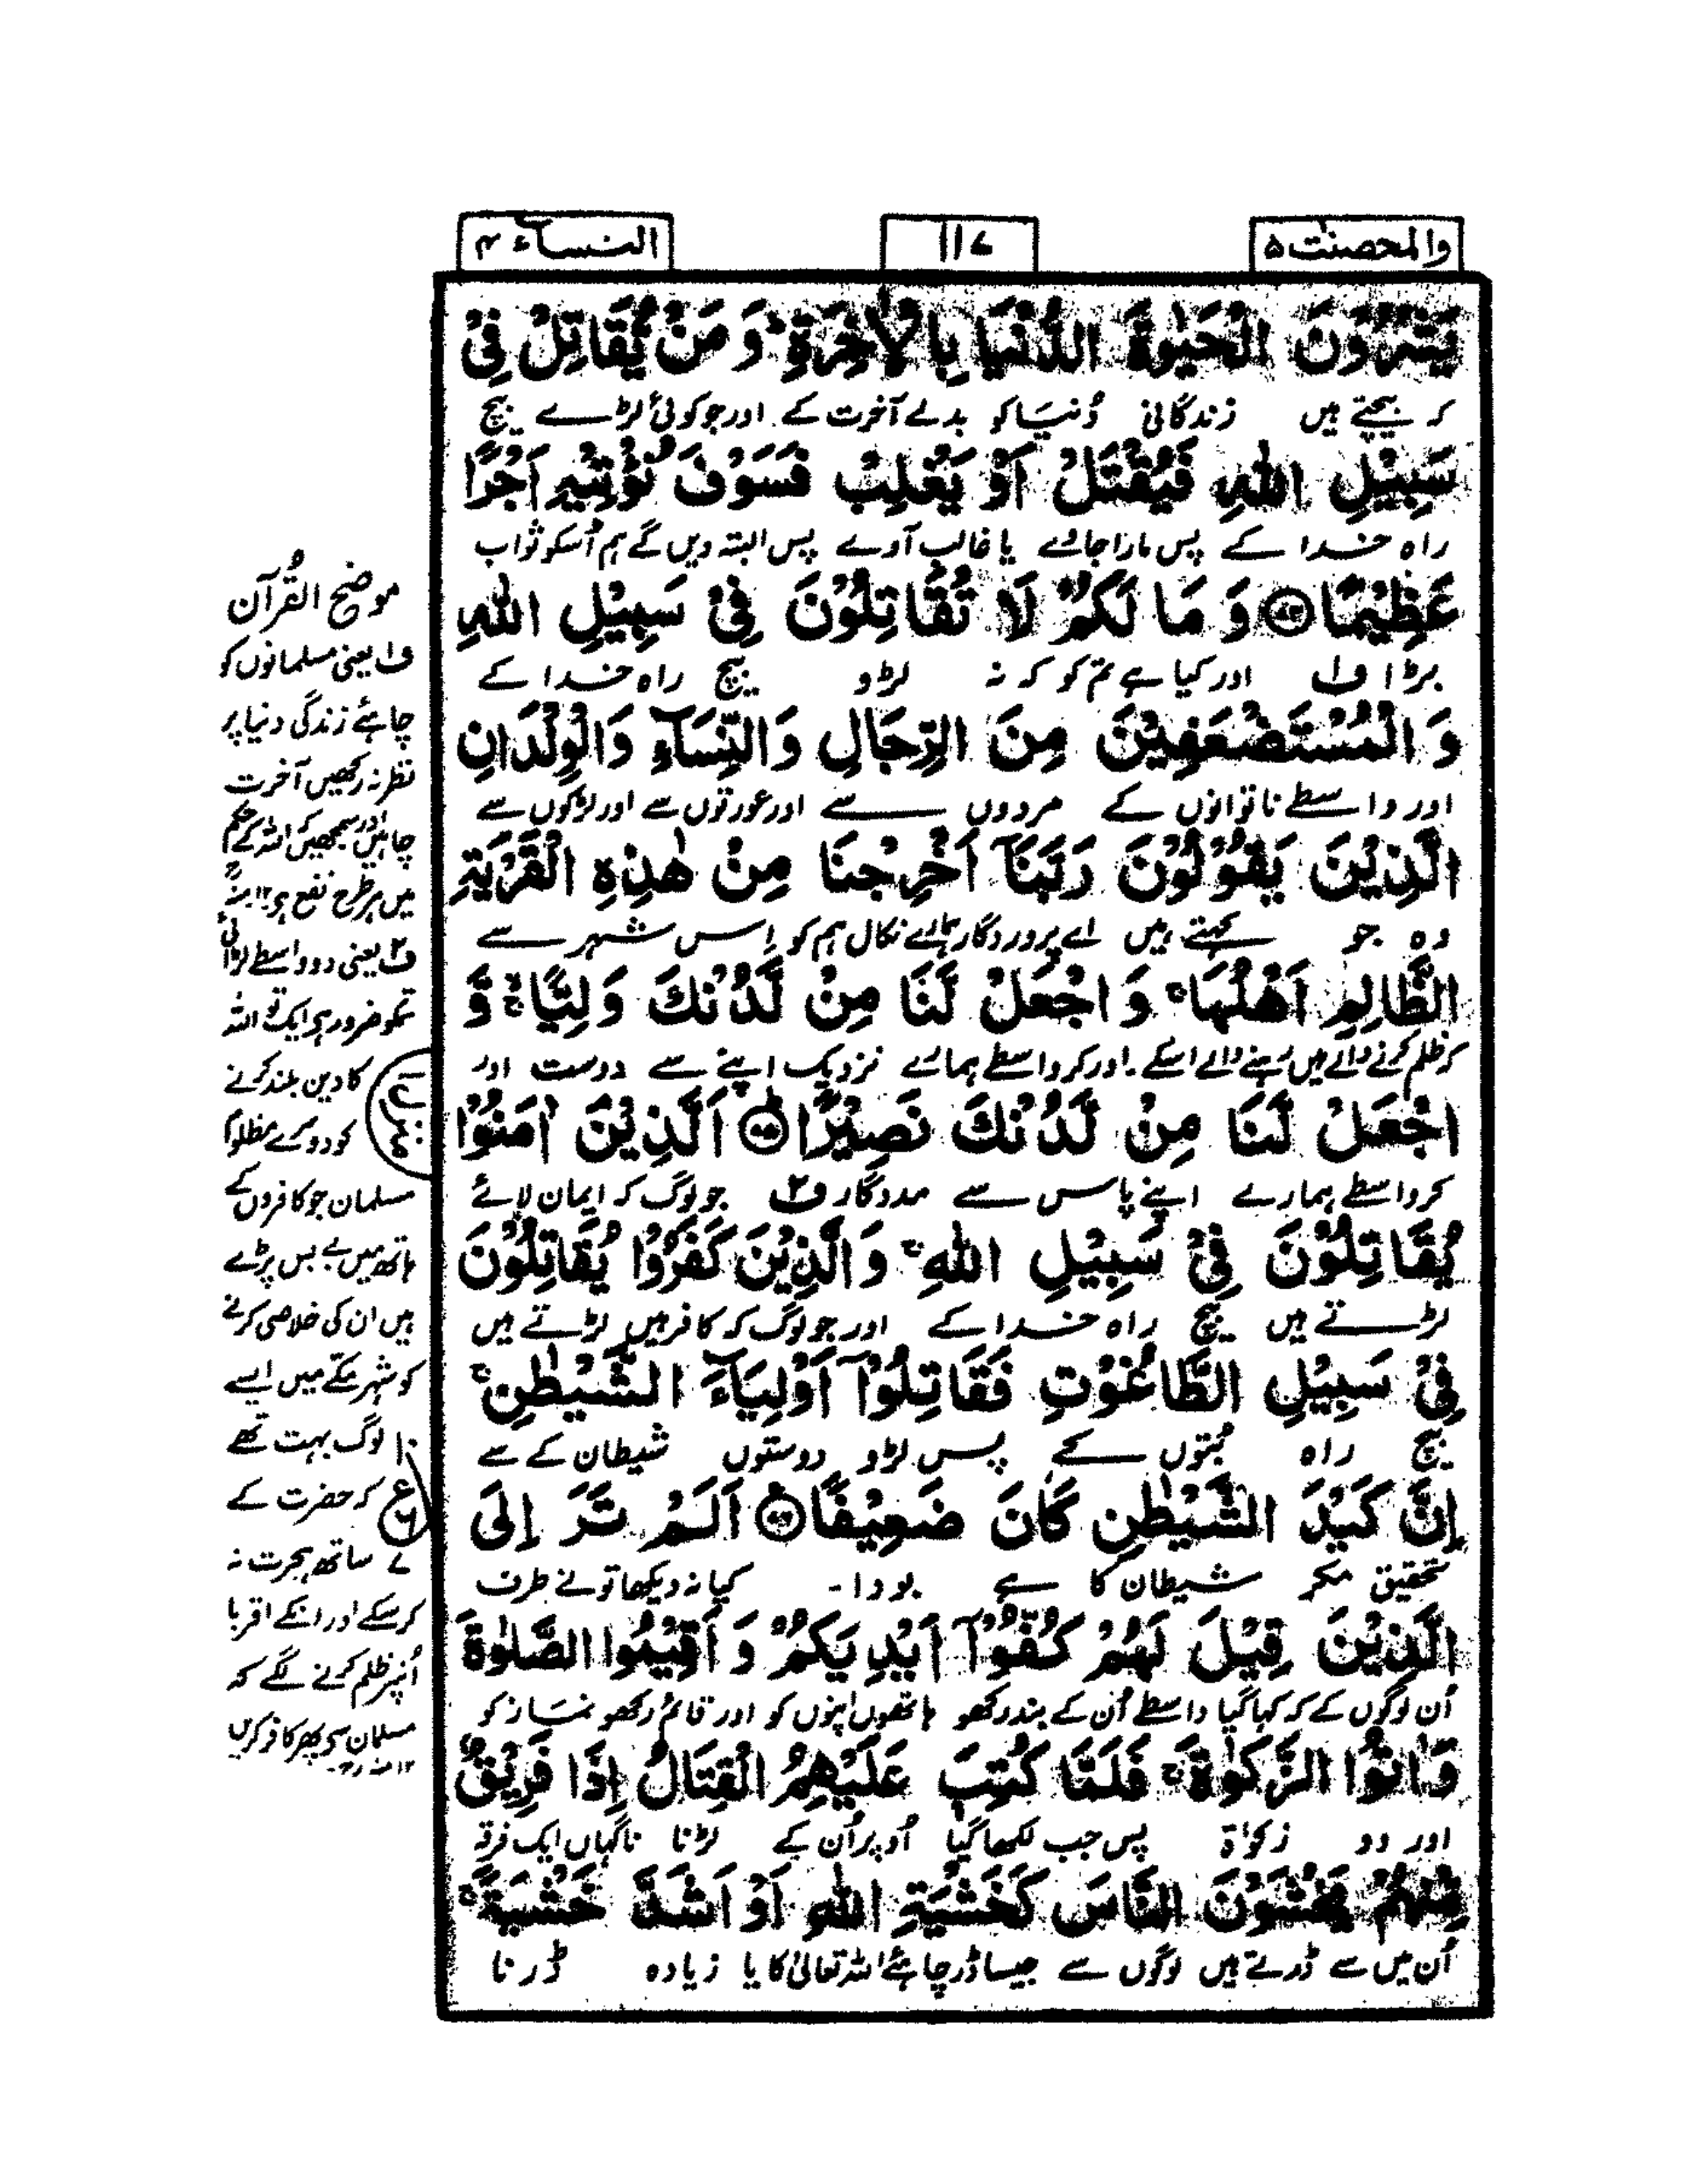 والمحصنت ۵
۱۱۷
النساء ۴
يَشْرُوْنَ الْحَيٰوةَ الدُّنْيَا بِالْاٰخِرَةِ ؕ وَ مَنْ يُّقَاتِلْ فِىْ
کہ بیچتے ہیں زندگانی دُنیَا کو بدلے آخرت کے اور جو کوئی لڑے بیچ
سَبِيْلِ اللّٰهِ فَيُقْتَلْ اَوْ يَغْلِبْ فَسَوْفَ نُؤْتِيْهِ اَجْرًا
راہ خدا کے پس مارا جاوے یا غالب آوے پس البتہ دیں گے ہم اُسکو ثواب
عَظِيْمًا ۝۷۴ وَ مَا لَكُمْ لَا تُقَاتِلُوْنَ فِىْ سَبِيْلِ اللّٰهِ
بڑا ف۱ اور کیا ہے تم کو کہ نہ لڑو بیچ راہ خدا کے
وَ الْمُسْتَضْعَفِيْنَ مِنَ الرِّجَالِ وَالنِّسَآءِ وَالْوِلْدَانِ
اور واسطے ناتوانوں کے مردوں سے اور عورتوں سے اور لڑکوں سے
الَّذِيْنَ يَقُوْلُوْنَ رَبَّنَآ اَخْرِجْنَا مِنْ هٰذِهِ الْقَرْيَةِ
وہ جو کہتے ہیں اے پروردگار ہمارے نکال ہم کو اِس شہر سے
الظَّالِمِ اَهْلُهَا ۚ وَ اجْعَلْ لَّنَا مِنْ لَّدُنْكَ وَلِيًّا ۙۚ وَّ
کہ ظلم کرنے والے ہیں رہنے والے اسکے اور کر واسطے ہمارے نزدیک اپنے سے دوست اور
اجْعَلْ لَّنَا مِنْ لَّدُنْكَ نَصِيْرًا ۝۷۵ اَلَّذِيْنَ اٰمَنُوْا
کر واسطے ہمارے اپنے پاس سے مددگار ف۲ جو لوگ کہ ایمان لائے
يُقَاتِلُوْنَ فِىْ سَبِيْلِ اللّٰهِ ۚ وَ الَّذِيْنَ كَفَرُوْا يُقَاتِلُوْنَ
لڑتے ہیں بیچ راہ خدا کے اور جو لوگ کہ کافر ہیں لڑتے ہیں
فِىْ سَبِيْلِ الطَّاغُوْتِ فَقَاتِلُوْٓا اَوْلِيَآءَ الشَّيْطٰنِ ۚ
بیچ راہ بُتوں کے پس لڑو دوستوں شیطان کے سے
اِنَّ كَيْدَ الشَّيْطٰنِ كَانَ ضَعِيْفًا ۝۷۶ اَلَمْ تَرَ اِلَى
تحقیق مکر شیطان کا ہے بودا۔ کیا نہ دیکھا تو نے طرف
الَّذِيْنَ قِيْلَ لَهُمْ كُفُّوْٓا اَيْدِيَكُمْ وَ اَقِيْمُوا الصَّلٰوةَ
اُن لوگوں کے کہ کہا گیا واسطے اُن کے بند رکھو ہاتھوں اپنوں کو اور قائم رکھو نمَاز کو
وَ اٰتُوا الزَّكٰوةَ ۚ فَلَمَّا كُتِبَ عَلَيْهِمُ الْقِتَالُ اِذَا فَرِيْقٌ
اور دو زکوٰۃ پس جب لکھا گیا اُوپر اُن کے لڑنا ناگہاں ایک فرقہ
مِّنْهُمْ يَخْشَوْنَ النَّاسَ كَخَشْيَةِ اللّٰهِ اَوْ اَشَدَّ خَشْيَةً ۚ
اُن میں سے ڈرتے ہیں لوگوں سے جیسا ڈر چاہئے اللہ تعالیٰ کا یا زیادہ ڈرنا
موضح القُرآن
ف۱ یعنی مسلمانوں کو
چاہئے زندگی دنیا پر
نظر نہ رکھیں آخرت
چاہیں اور سمجھیں کہ اللہ کے حکم
میں ہر طرح نفع ہے ۱۲ منہ
ف۲ یعنی دو واسطے لڑائی
تمکو ضرور ہے ایک تو اللہ
کا دین بلند کرنے
کو دوسرے مظلوم
مسلمان جو کافروں کے
ہاتھ میں بے بس پڑے
ہیں ان کی خلاصی کرنے
کو شہر مکّے میں ایسے
لوگ بہت تھے
کہ حضرت کے
ساتھ ہجرت نہ
کرسکے اور انکے اقربا
اُنپر ظلم کرنے لگے کہ
مسلمان سے پھر کافر کریں
۱۲ منہ رح
۱۰
ع
۶
۷